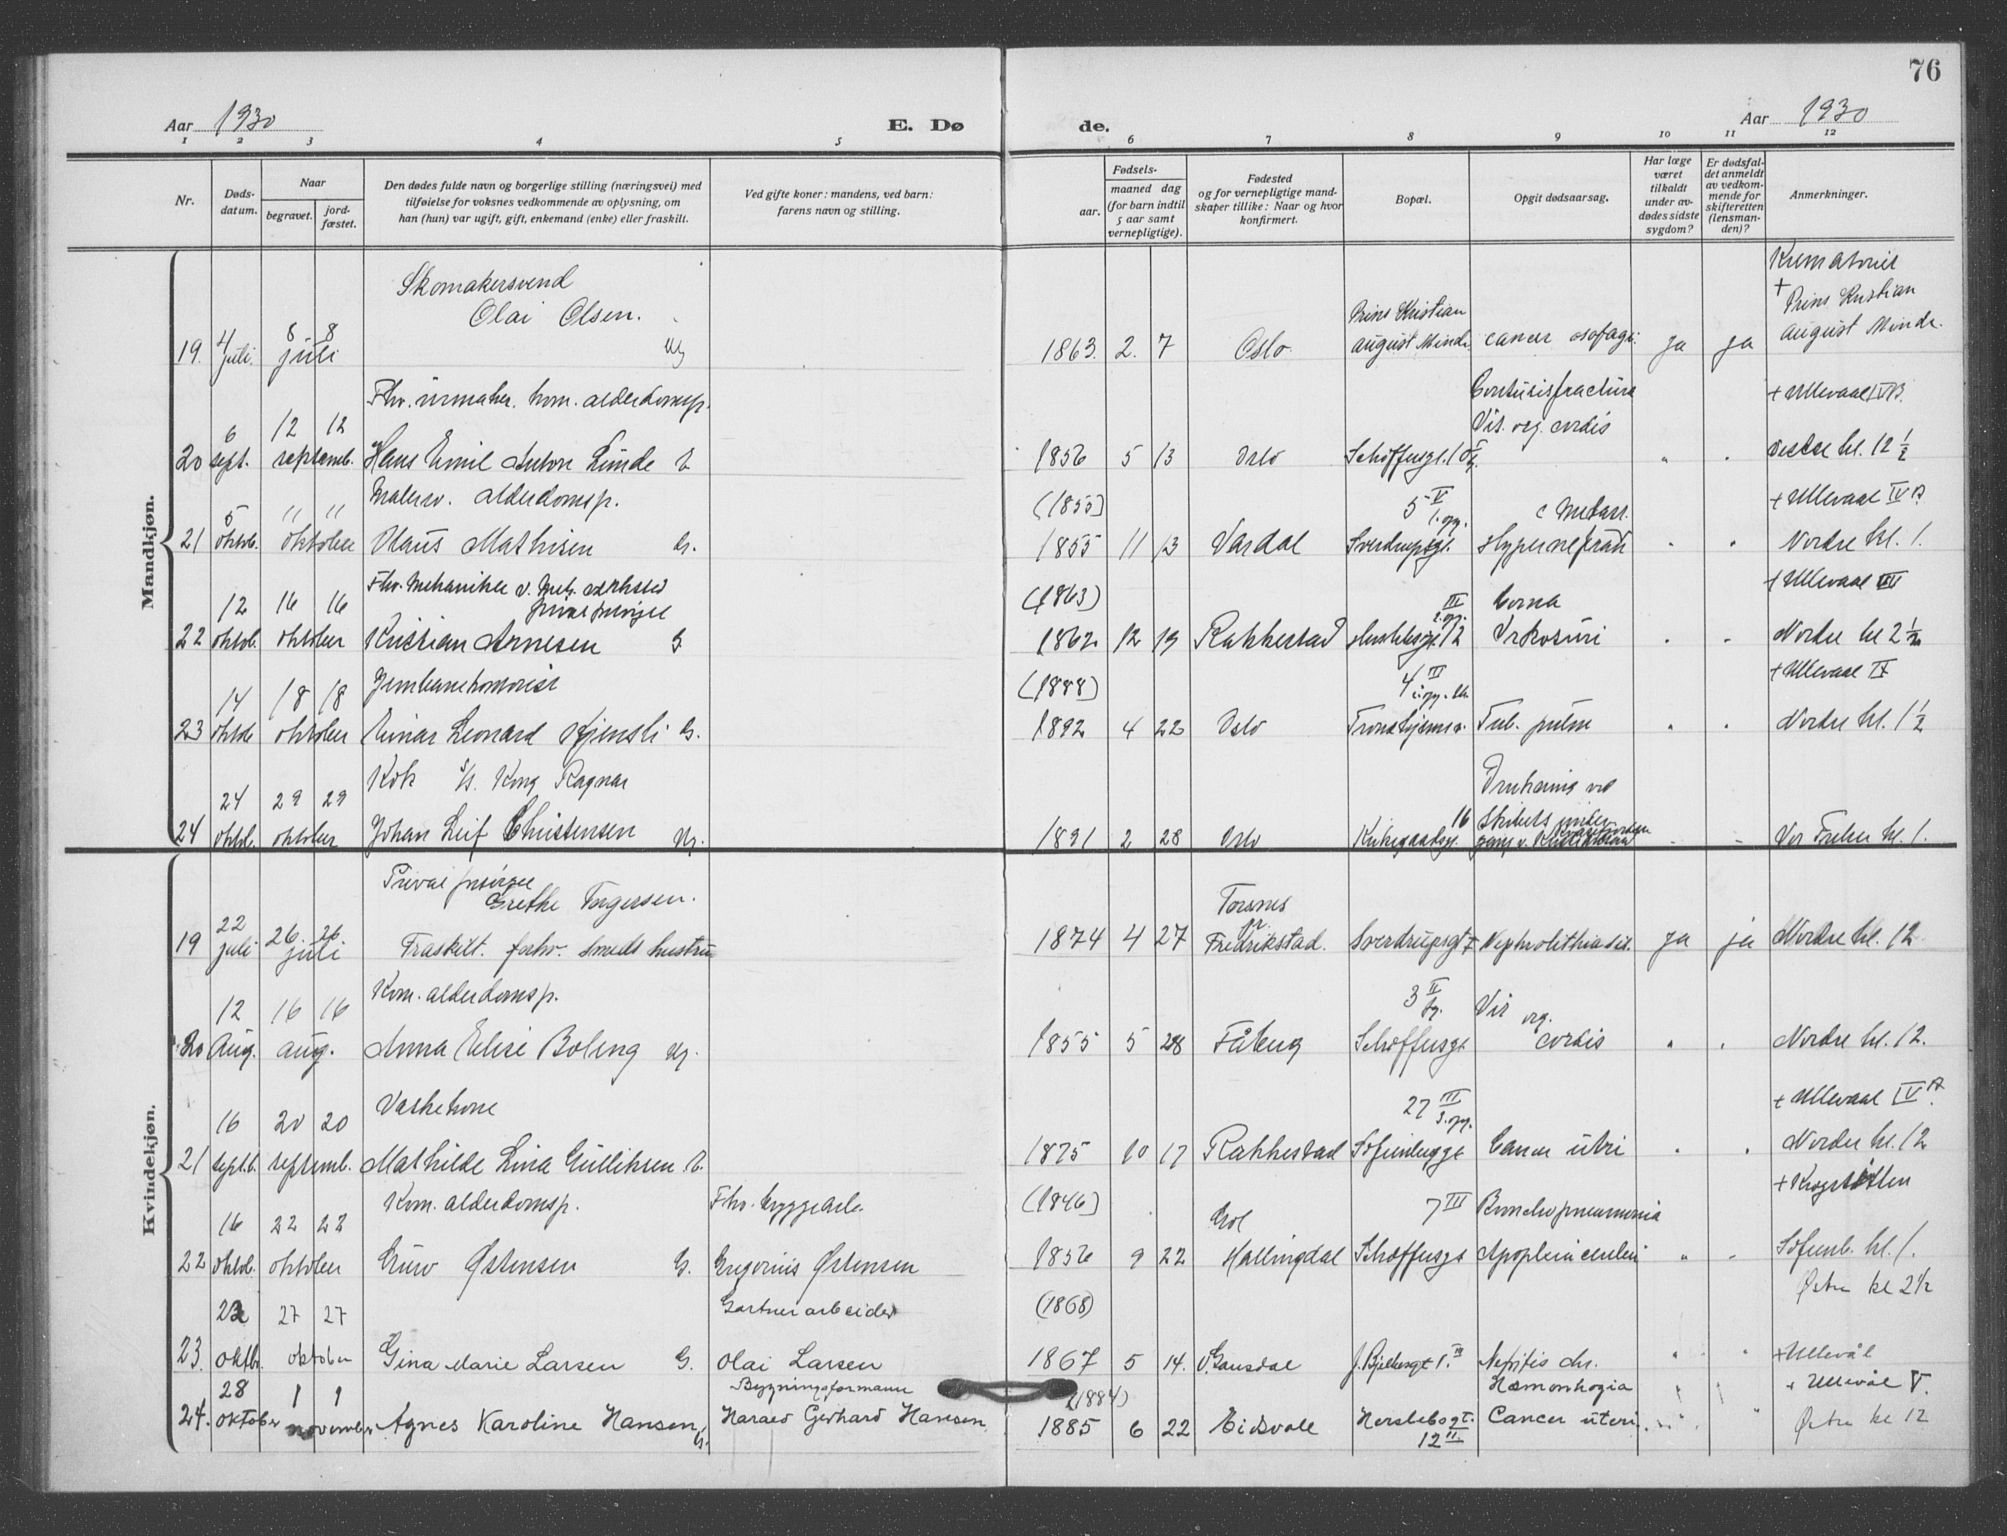 76
Aar 1930
E. Dø
de.
Aar 1930
1 2 3 4 5 6 7 8 9 10 11 12
Nr.
Døds-
datum.
Naar
begravet.
jord-
fæstet.
Den dødes fulde navn og borgerlige stilling (næringsvei) med
tilføielse for voksnes vedkommende av oplysning, om
han (hun) var ugift, gift, enkemand (enke) eller fraskilt.
Ved gifte koner: mandens, ved barn:
farens navn og stilling.
Fødsels-
aar.
maaned dag
(for barn indtil
5 aar samt
vernepligtige).
Fødested
og for vernepligtige mand-
skaper tillike: Naar og hvor
konfirmert.
Bopæl.
Opgit dødsaarsag.
Har læge
været
tilkaldt
under av-
dødes sidste
sygdom?
Er dødsfal-
det anmeldt
av vedkom-
mende for
skifteretten
(lensman-
den)?
Anmerkninger.
Mandkjøn.
Skomakersvend
Olai Olsen.
19. 4 juli. 8 8 juli Ug
1863. 2. 7 Oslo
Prins Kristian
august Minde.
cancer osofagi.
ja ja
Krematoriet
+ Prins Kristian
august Minde.
Fhv. urmaker. kom. alderdomsp.
20 6 sept. 12 12 septemb. Hans Emil Anton Lunde E
1856 5 13 Oslo Schøffusgt.
Vit. org. cordis
" "
+ Ullevaal IV B.
Vestre kl. 12 1/2
Malersv. alderdomsp.
21 5 oktob. 11 11 oktober Olaus Mathisen G.
(1855)
1855 11 13 Vardal
5 V
Sverdrupsgt.
c Metast.
" "
+ Ullevaal IV A.
Nordre kl. 1.
Fhv. Mekaniker v. Mek. verksted
22 12 oktob. 16 16 oktober Kristian Arnesen G
(1863)
1862 12 19 Rakkestad
III
12
Coma
" "
+ Ullevaal III
Nordre kl 2 1/2
23 14 oktob 18 18 oktober Einar Leonard G.
(1888)
1892 4 22 Oslo
4 III
Trondhjemsv.
Tub. pulm
" "
+ Ullevaal IX
Nordre kl. 1 1/2
Kok S/S. Kong Ragnar
24 24 oktob. 29 29 oktober Johan Leif Christensen Ug.
1891 2 28 Oslo
16
Kirkegaardsgt.
Drukning ved
Skibets under
gang v.
Vor Frelser kl. 1.
Kvindekjøn.
Privat forsørget
Grethe Torgersen.
19 22 juli 26 26 juli Fraskilt. forhv. smeds hustru
1874 4 27
Torsnes
Fredrikstad.
Sverdrupsgt 7
Nephrolithiasis.
ja ja
Nordre kl. 12
Kom. alderdomsp.
20 12 Aug. 16 16 aug. Anna Elise Boleng Ug.
1855 5 28 Fåberg
3 II
Schøffusgt
Vit org.
cordis
" "
Nordre kl. 12.
Vaskekone
21 16 septb. 20 20 septemb. Mathilde Lina Gulliksen E.
1875 10 17 Rakkestad
27 III
Sofienberggt
Cancer uteri
" "
+ Ullevaal IV A.
Nordre kl. 12
Kom. alderdomsp.
Fhv. byggearb.
22 16 oktob. 22 22 oktober Guro Østensen G. Gregorius Østensen
(1846)
1856 9 22
Gol
Hallingdal
7 III
Schøffusgt
Bronchopneumonia
Apoplexia cerebri
" "
+ Krogstøtten
Sofienb. kl. 1.
Gartnerarbeider
23. oktbr. 27 27 oktober Gina Marie Larsen G. Olai Larsen
(1868)
1867 5 14. V. Gausdal
Nefritis chr.
" "
Østre kl 2 1/2
+ Ullevål
Bygningsformann
24. 28 oktober 1 1 november Agnes Karoline Hansen G. Harald Gerhard Hansen
(1884)
1885 6 22 Eidsvoll
Herslebsgt.
12 II.
Hæmorrhagia
Cancer uteri.
" "
+ Ullevål V.
Østre kl 12